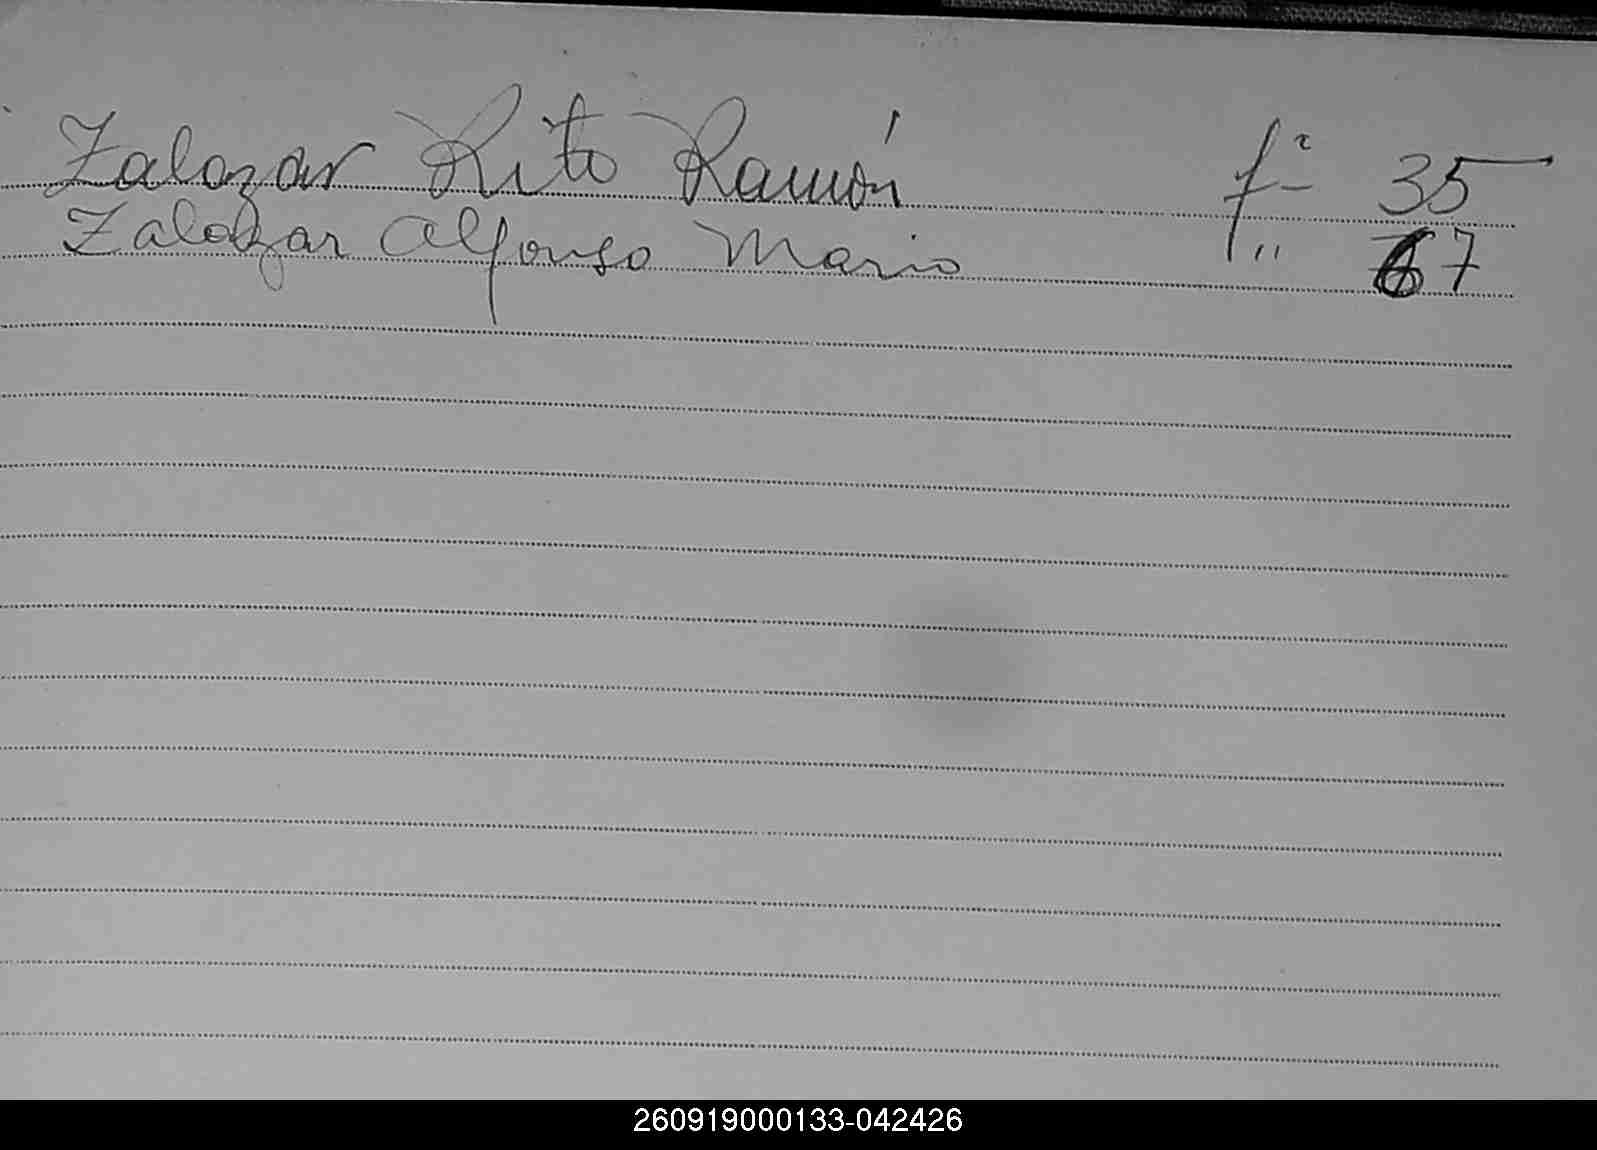 Zalazar Rito Ramón fº 35
Zalazar Alfonso Mario " 67
260919000133-042426